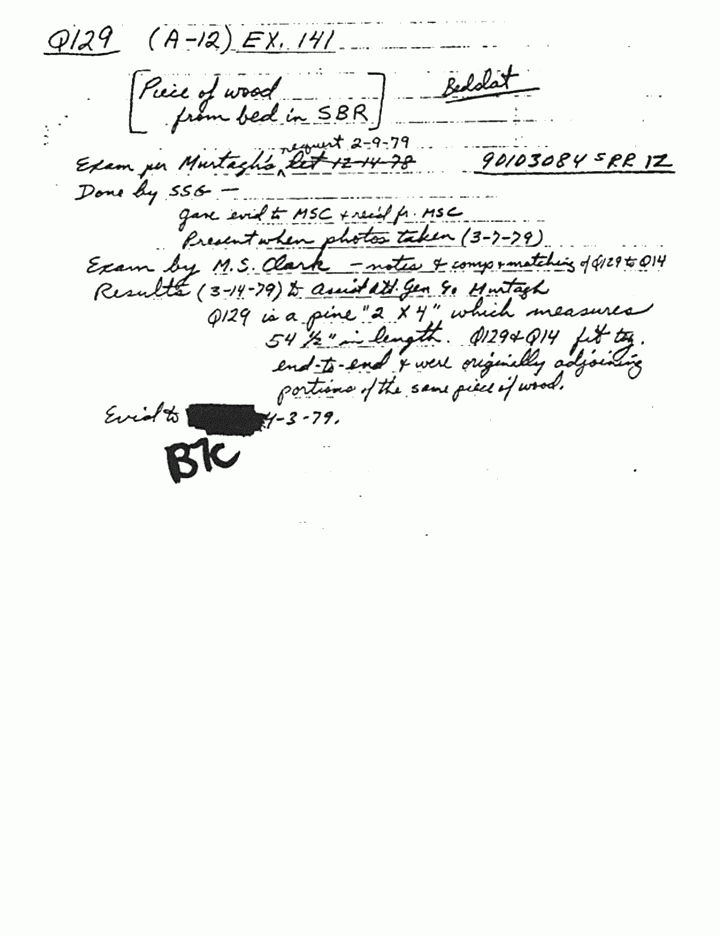 Q129 (A-12) EX. 141
Piece of wood Bedslat
from bed in SBR
request 2-9-79
Exam per Murtagh's let 12-14-78 90103084 S RR IZ
Done by SSG —
gave evid to MSC + rec'd fr. MSC
Present when photos taken (3-7-79)
Exam by M.S. Clark — notes & comp & matching of Q129 to Q14
Results (3-14-79) to Assist Att. Gen Murtagh
Q129 is a pine "2 X 4" which measures
54 ½" in length. Q129 & Q14 fit tog.
end-to-end & were originally adjoining
portions of the same piece of wood.
Evid to 4-3-79.
B7C